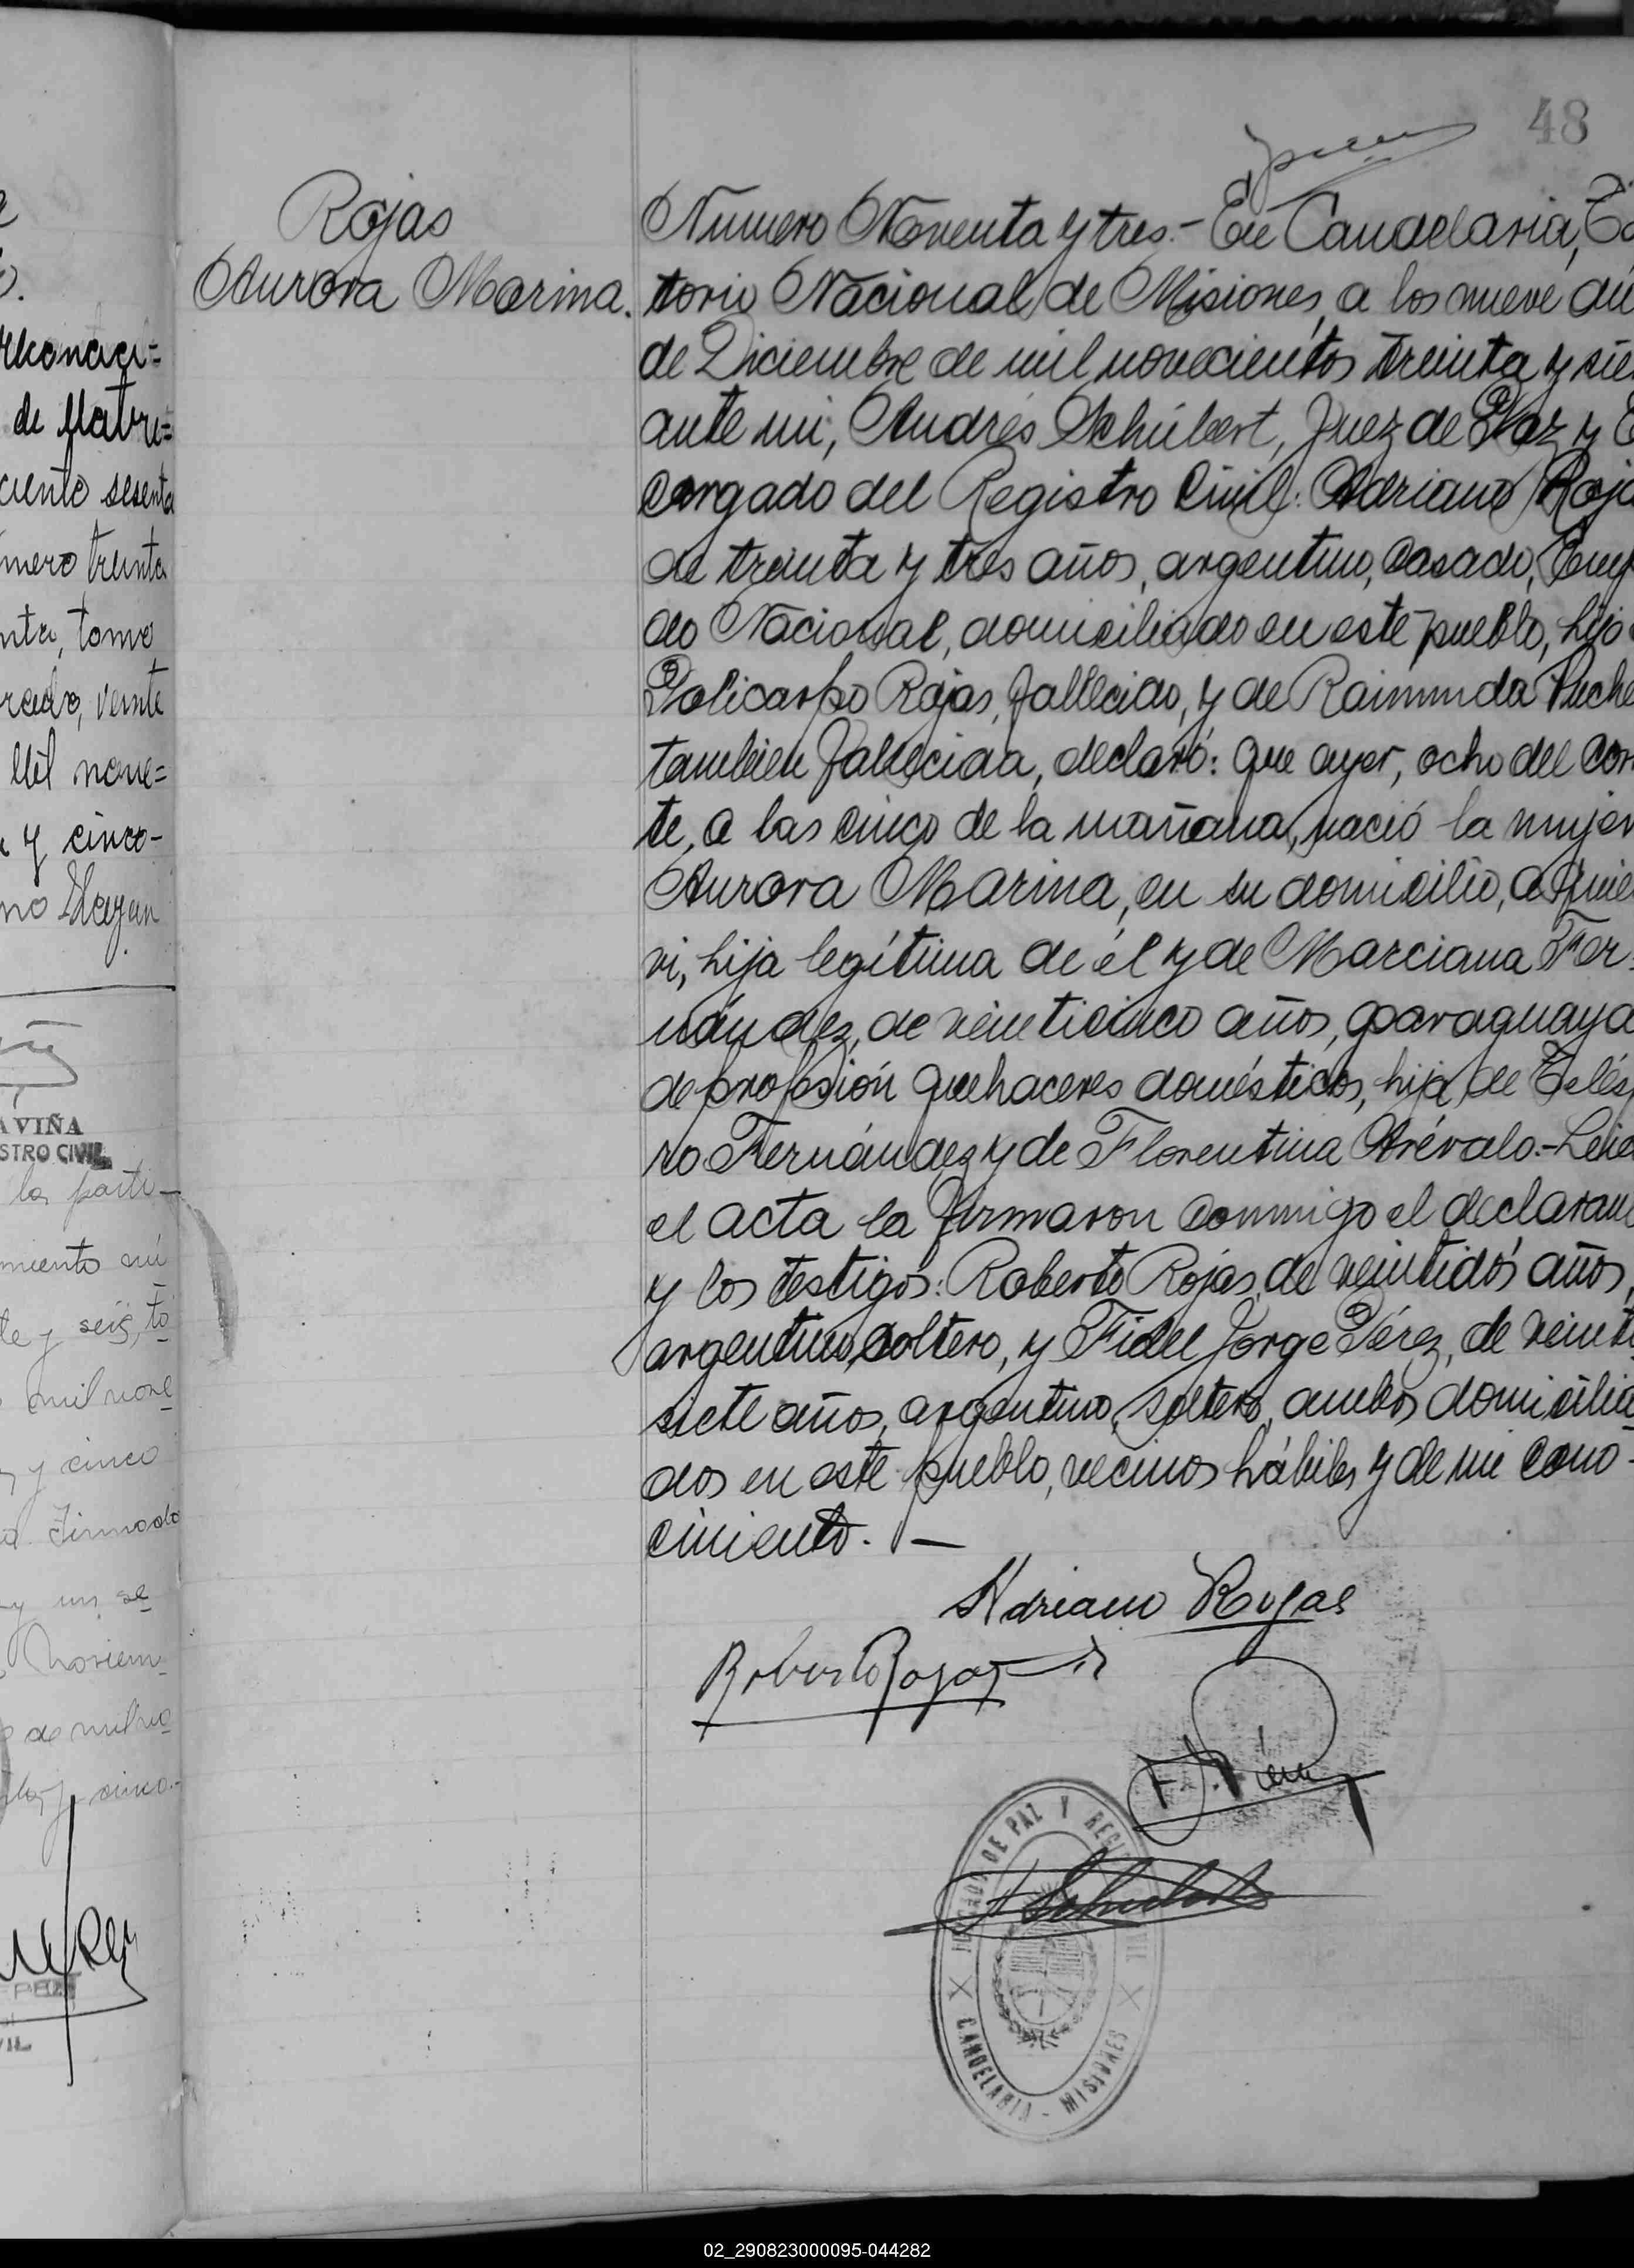 48
Rojas
Aurora Marina.
Número Noventa y tres.- En Candelaria,
torio Nacional de Misiones, a los nueve
de Diciembre de mil novecientos treinta y
ante mi, Andrés Schúbert, Juez de Paz y
cargado del Registro Civil: Adriano
de treinta y tres años, argentino, casado,
do Nacional, domiciliado en este pueblo, hijo
Policarpo Rojas, fallecido, y de Raimunda
tambien fallecida, declaró: que ayer, ocho del
te, a las cinco de la mañana, nació la mujer
Aurora Marina, en su domicilio, a
vi, hija legítima de él y de Marciana Fer-
nández, de veinticinco años, paraguaya
de profesión quehaceres domésticos, hija de
ro Fernández y de Florentina Arévalo.-
el acta la firmaron conmigo el
y los testigos: Roberto Rojas, de veintidós años,
argentino, soltero, y Fidel Jorge Pérez, de
siete años, argentino, soltero, ambos domicilia-
dos en este pueblo, vecinos hábiles y de mi cono-
cimiento.-
Adriano Rojas
Roberto Rojas
F. J. Pérez
A Schubert
JUZGADO DE PAZ Y
CANDELARIA - MISIONES
de Matri=
ciento sesenta
mero treinta
tomo
veinte
Mil nove=
y cinco-
A VIÑA
STRO CIVIL
la parti-
miento nú
te y seis, to
mil nove
y cinco
Firmado
y un se
Noviem-
02_290823000095-044282